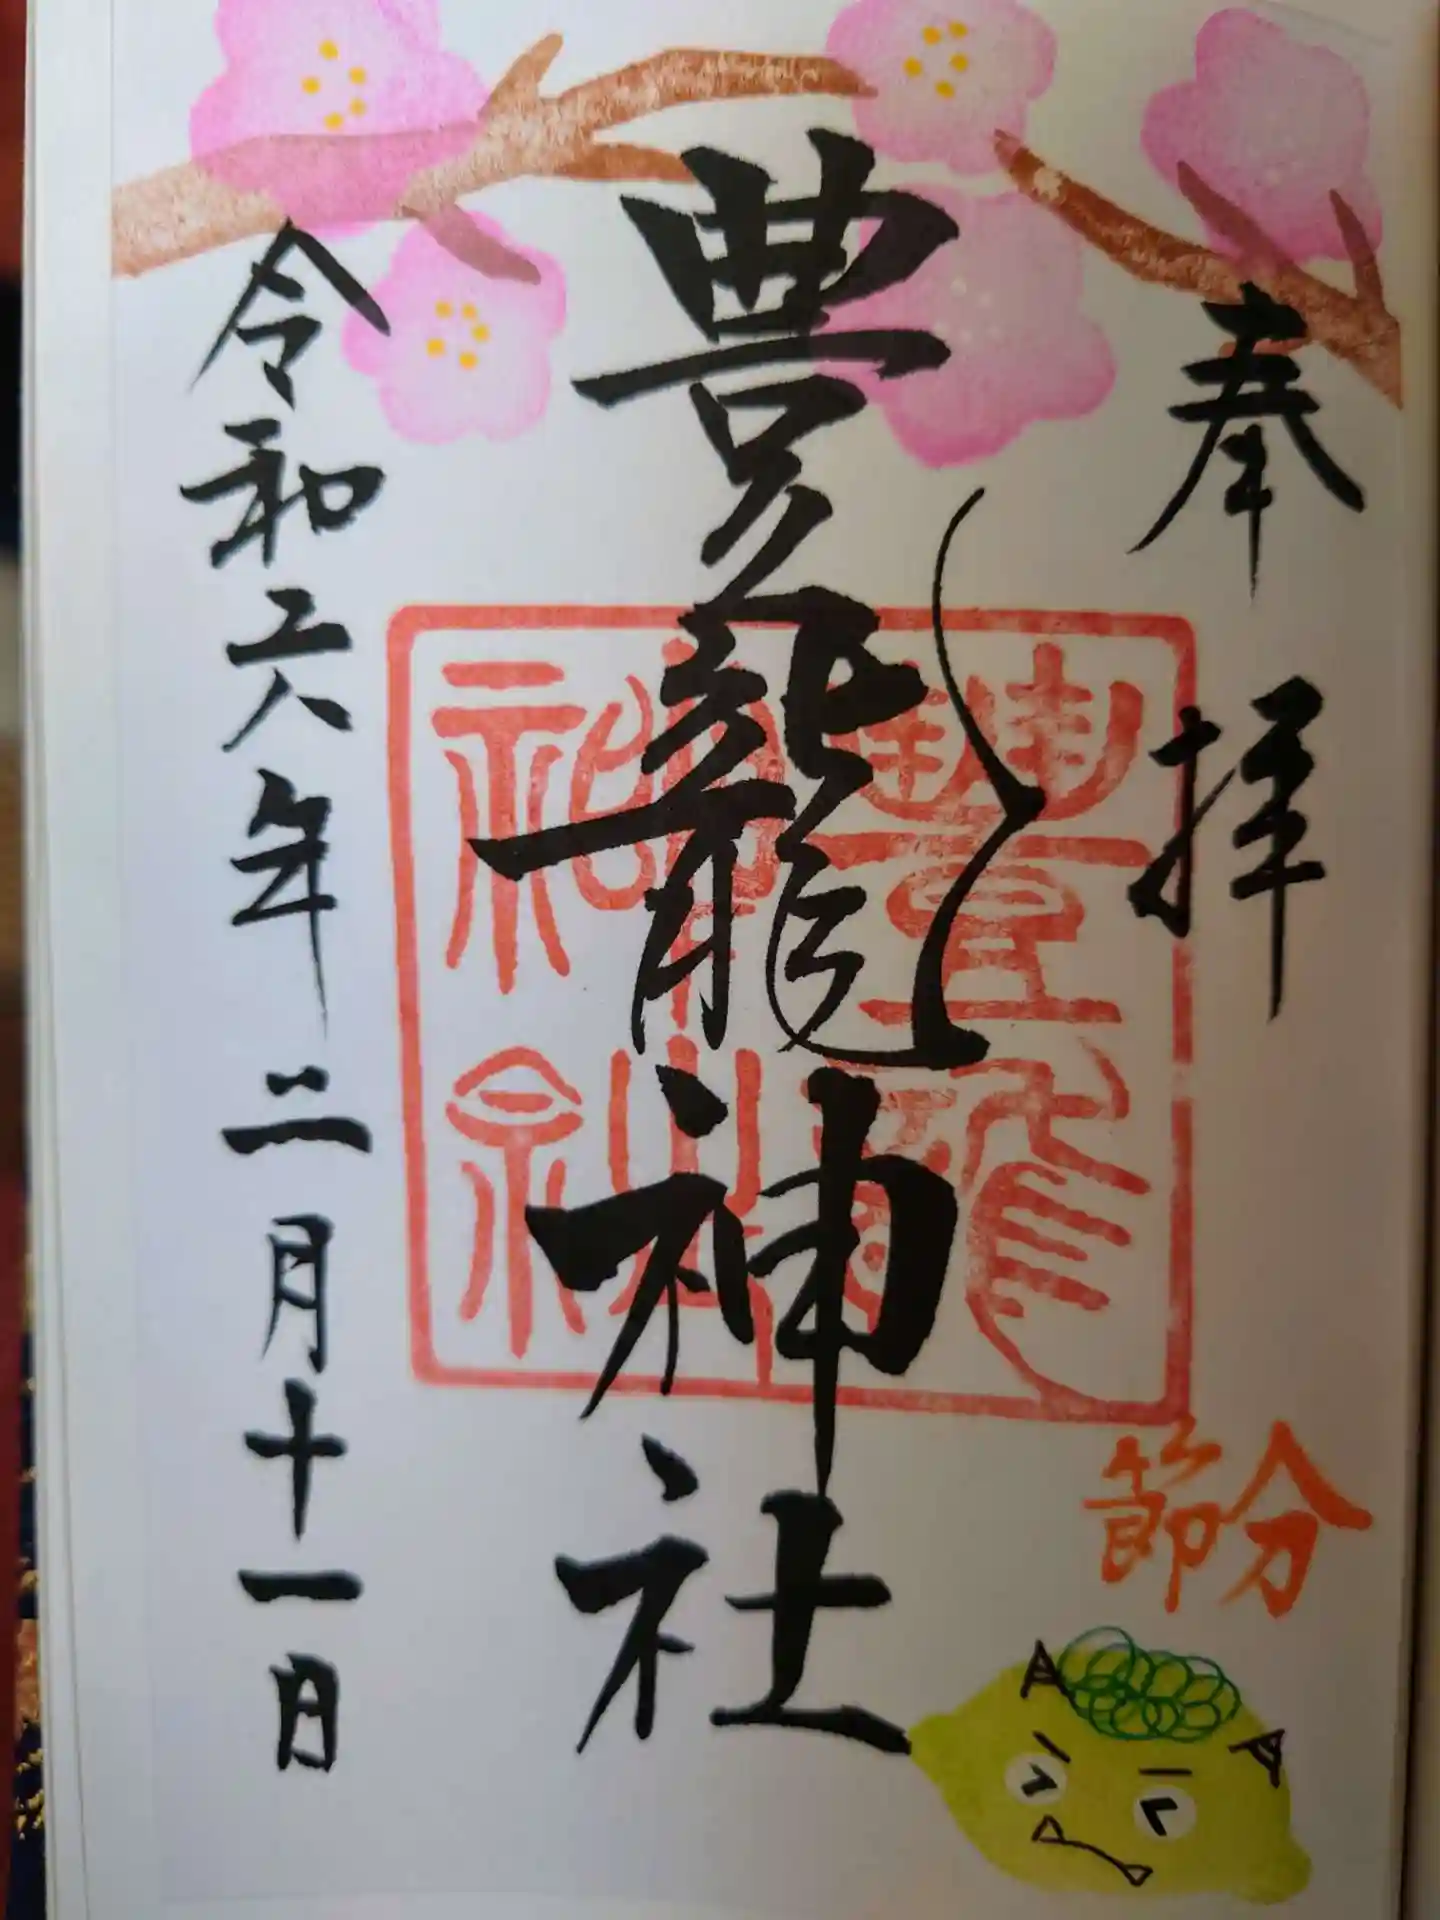 奉拝
豊龍神社
令和六年二月十一日
節分